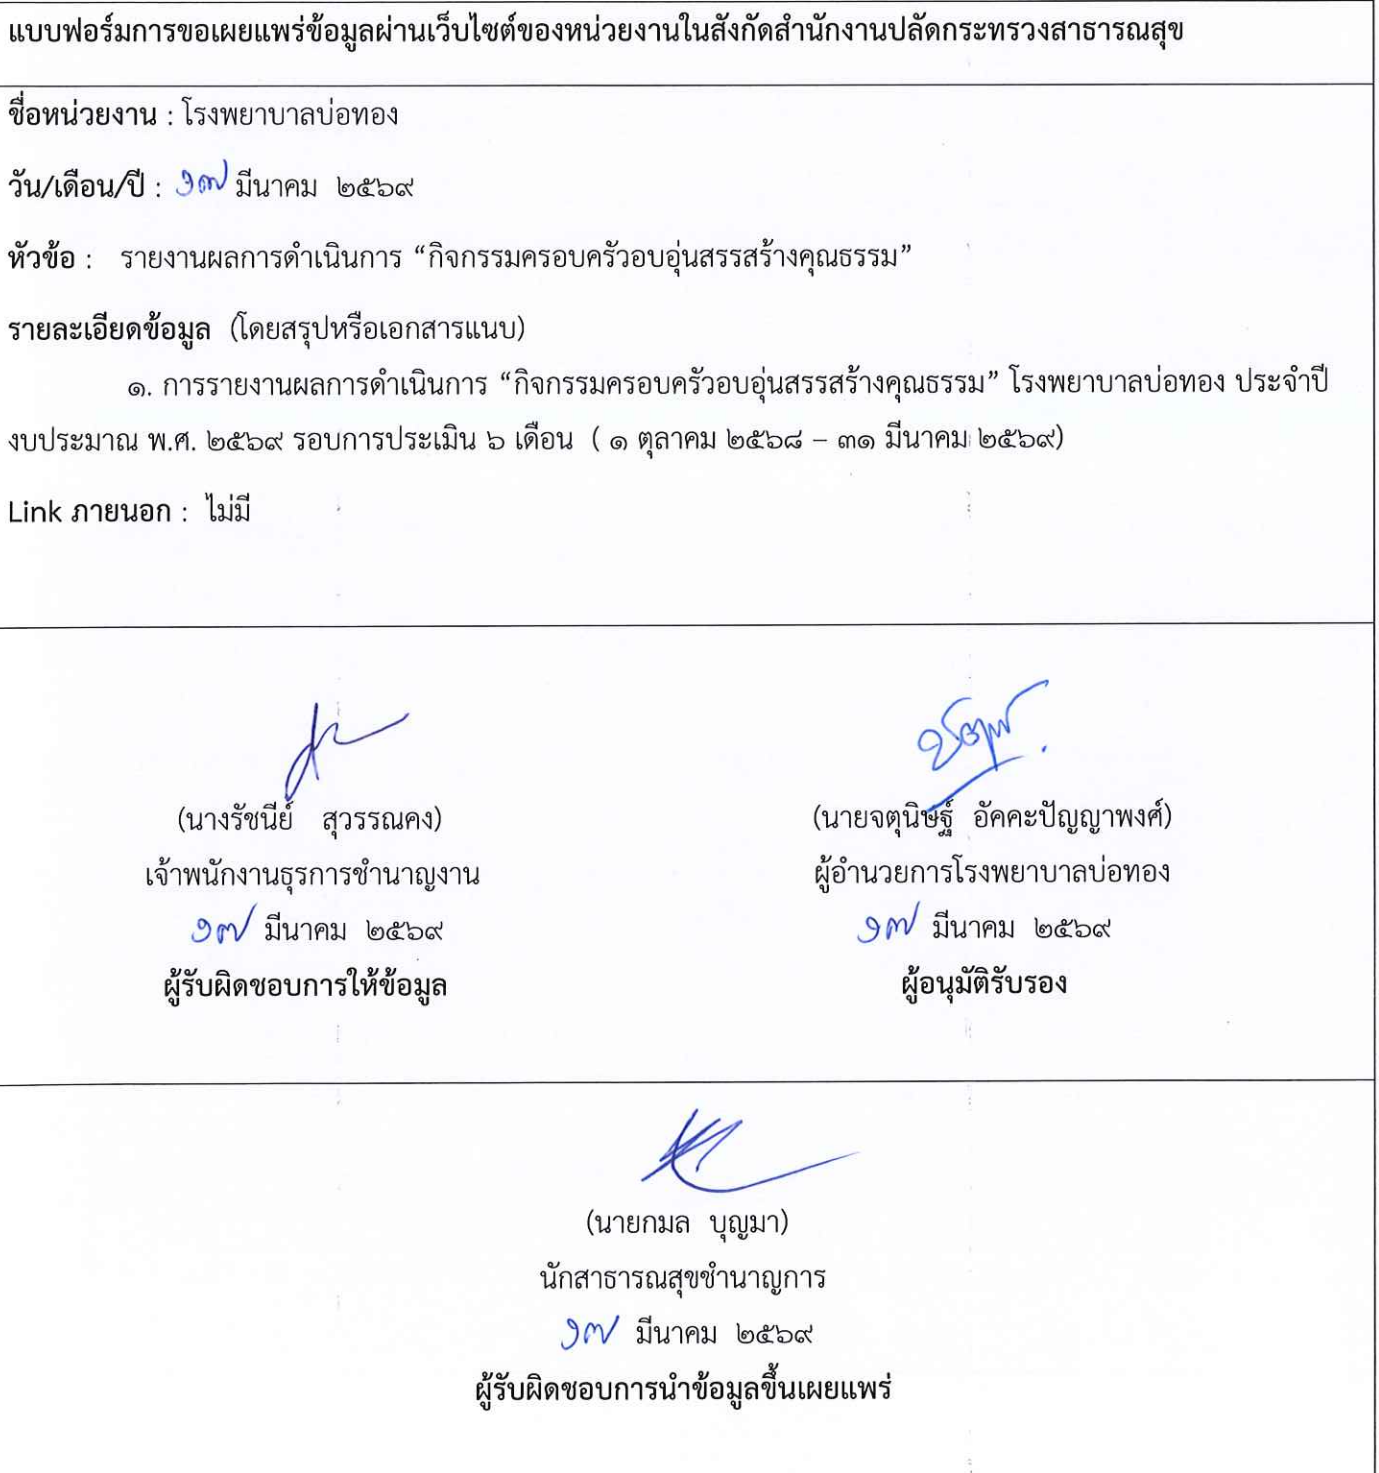 แบบฟอร์มการขอเผยแพร่ข้อมูลผ่านเว็บไซต์ของหน่วยงานในสังกัดสำนักงานปลัดกระทรวงสาธารณสุข
ชื่อหน่วยงาน : โรงพยาบาลบ่อทอง
วัน/เดือน/ปี : ๑๗ มีนาคม ๒๕๖๙
หัวข้อ : รายงานผลการดำเนินการ “กิจกรรมครอบครัวอบอุ่นสรรสร้างคุณธรรม”
รายละเอียดข้อมูล (โดยสรุปหรือเอกสารแนบ)
๑. การรายงานผลการดำเนินการ “กิจกรรมครอบครัวอบอุ่นสรรสร้างคุณธรรม” โรงพยาบาลบ่อทอง ประจำปี
งบประมาณ พ.ศ. ๒๕๖๙ รอบการประเมิน ๖ เดือน ( ๑ ตุลาคม ๒๕๖๘ – ๓๑ มีนาคม ๒๕๖๙)
Link ภายนอก : ไม่มี
(นางรัชนีย์ สุวรรณคง)
เจ้าพนักงานธุรการชำนาญงาน
๑๗ มีนาคม ๒๕๖๙
ผู้รับผิดชอบการให้ข้อมูล
(นายจตุนิษฐ์ อัคคะปัญญาพงศ์)
ผู้อำนวยการโรงพยาบาลบ่อทอง
๑๗ มีนาคม ๒๕๖๙
ผู้อนุมัติรับรอง
(นายกมล บุญมา)
นักสาธารณสุขชำนาญการ
๑๗ มีนาคม ๒๕๖๙
ผู้รับผิดชอบการนำข้อมูลขึ้นเผยแพร่